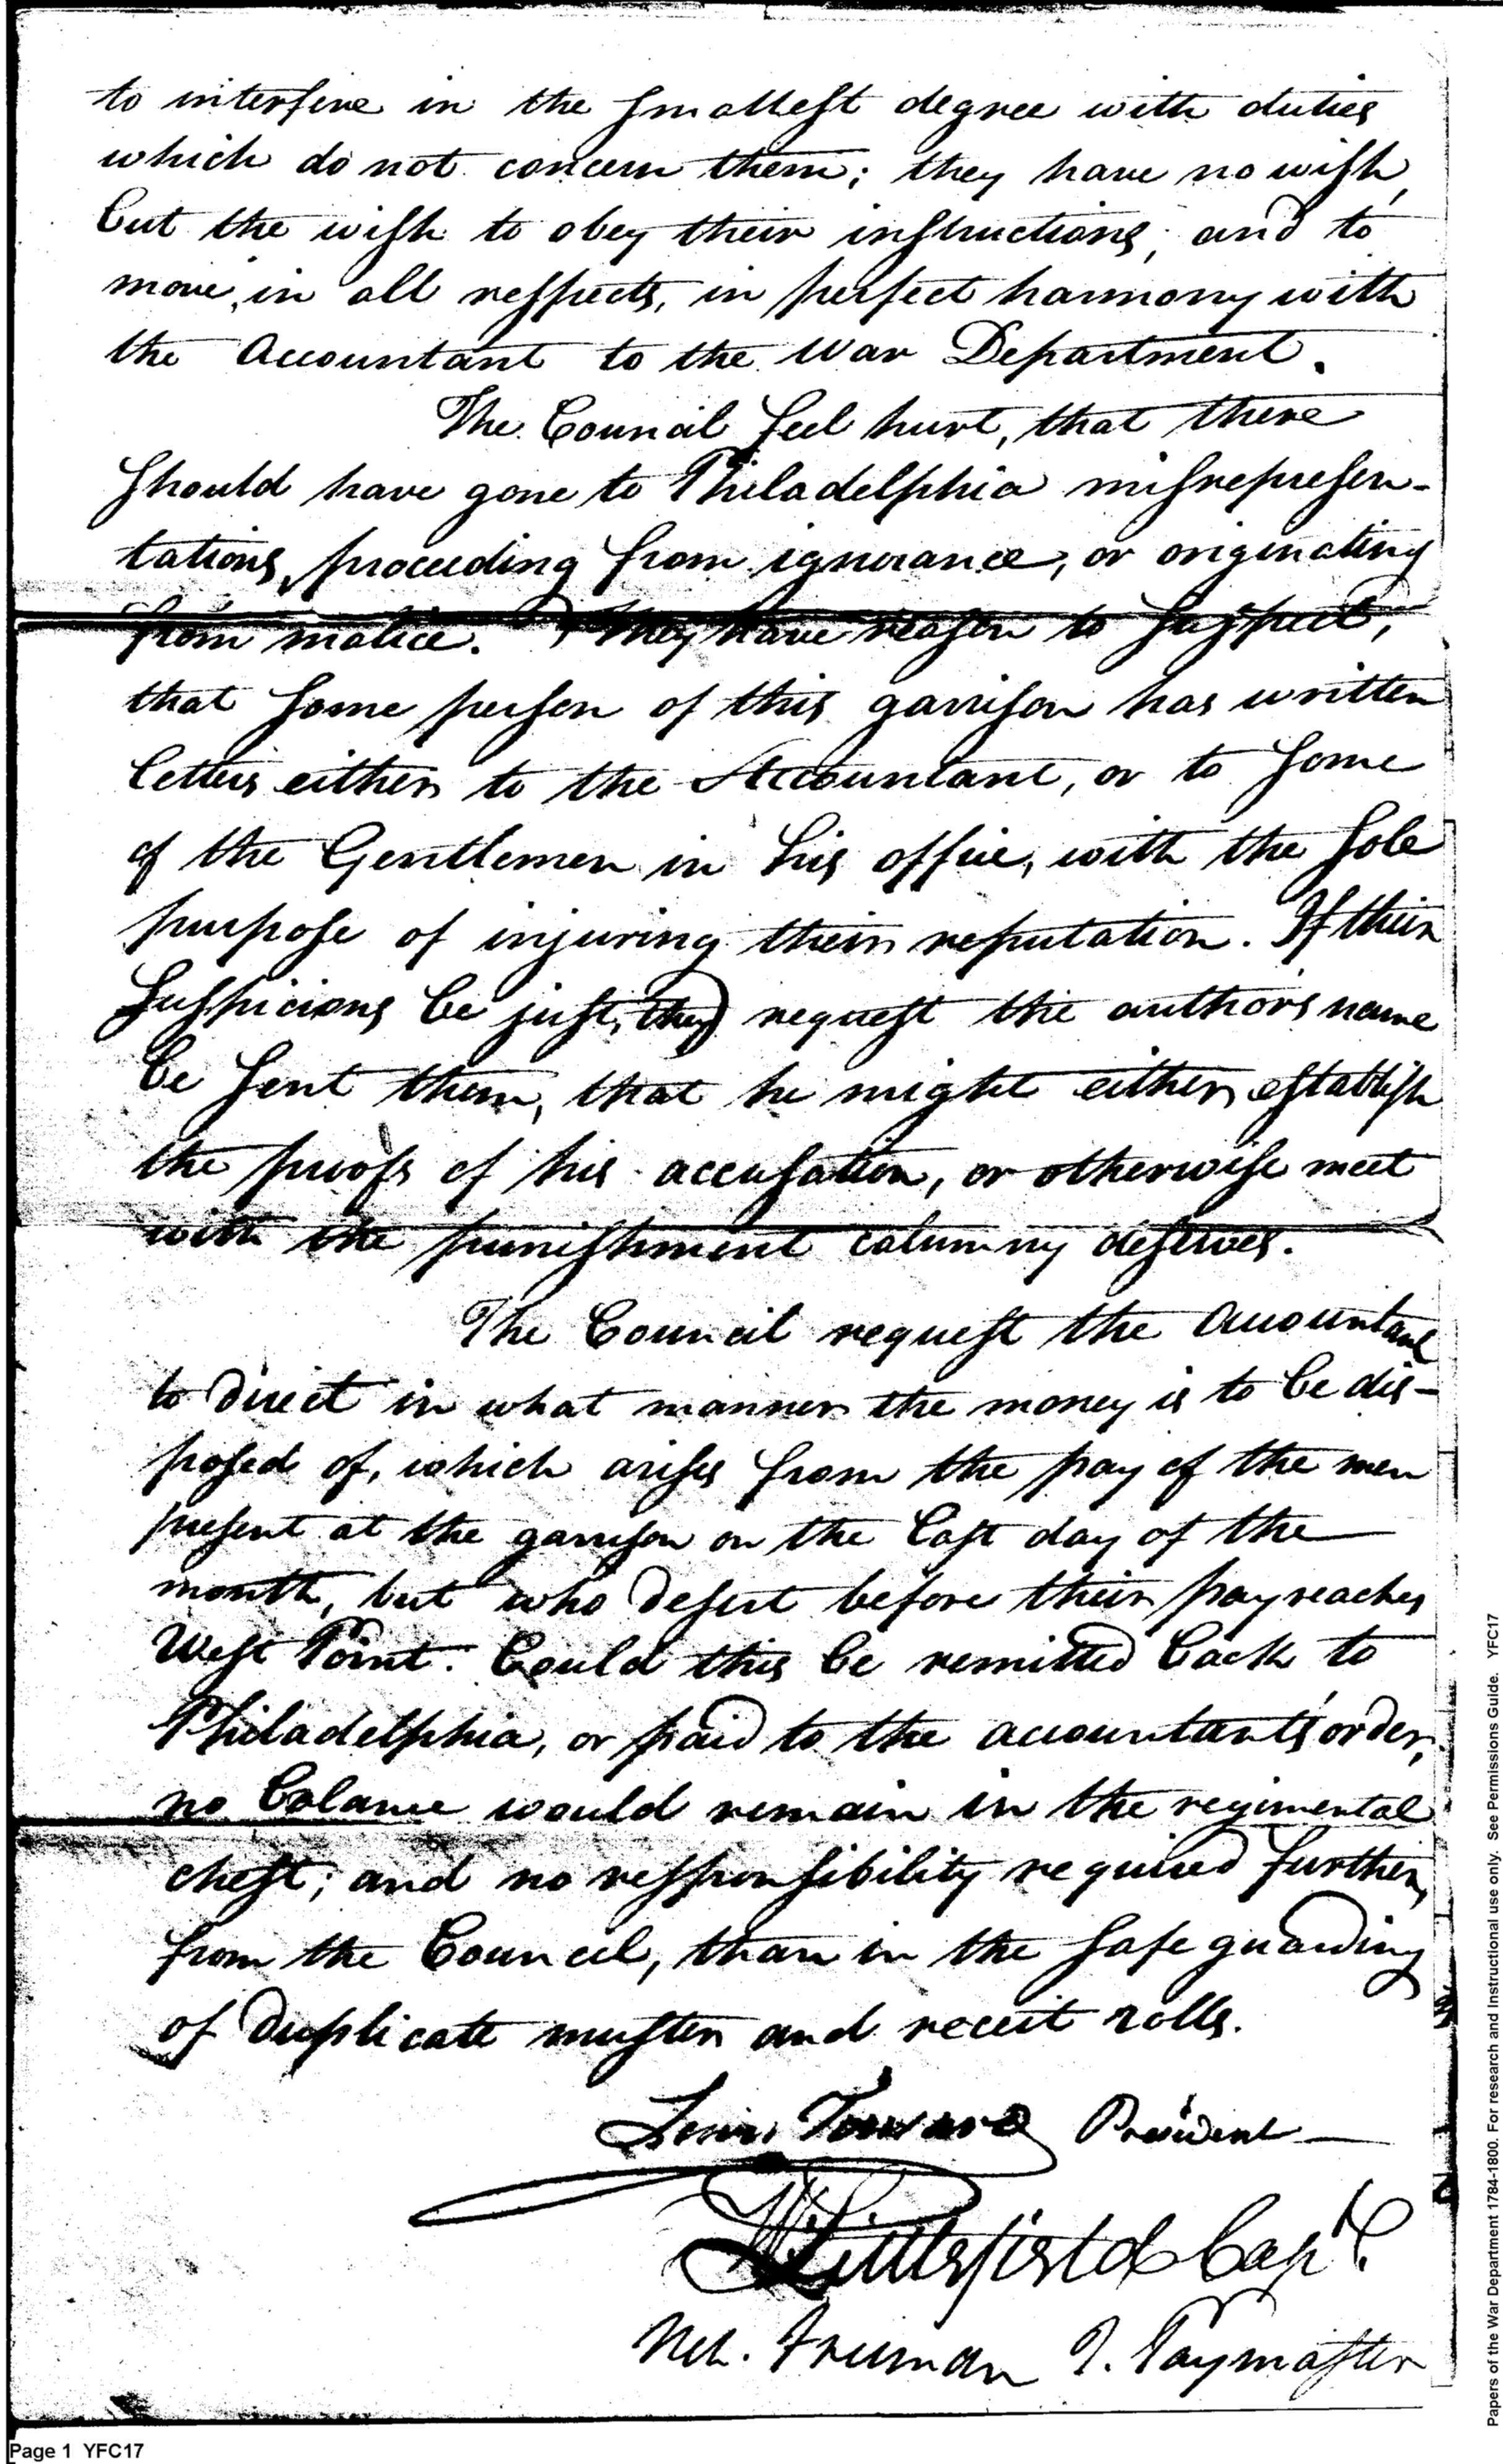 to interfere in the smallest degree with duties
which do not concern them; they have no wish,
but the wish to obey their instructions; and to
move, in all respects, in perfect harmony with
the Accountant to the War Department.
The Council feel hurt, that there
should have gone to Philadelphia misrepresen-
tations, proceeding from ignorance, or originating
from malice. They have reason to suspect,
that some person of this garrison has written
letters either to the Accountant, or to some
of the Gentlemen in his office, with the sole
purpose of injuring their reputation. If their
suspicions be just, they request the authors name
be sent them, that he might either establish
the proofs of his accusation, or otherwise meet
with the punishment calumny deserves.
The Council request the Accountant
to direct in what manner the money is to be dis-
posed of, which arises from the pay of the men
present at the garrison on the last day of the
month, but who desert before their pay reaches
West Point. Could this be remitted back to
Philadelphia, or paid to the accountants' order,
no balance would remain in the regimental
chest; and no responsibility required further,
from the Council, than in the safe guarding
of duplicate muster and receit rolls.
Louis Tousard President
W Littlefield Capt.
Net. Freeman P. Paymaster
Page 1 YFC17
Papers of the War Department 1784-1800. For research and Instructional use only. See Permissions Guide. YFC17